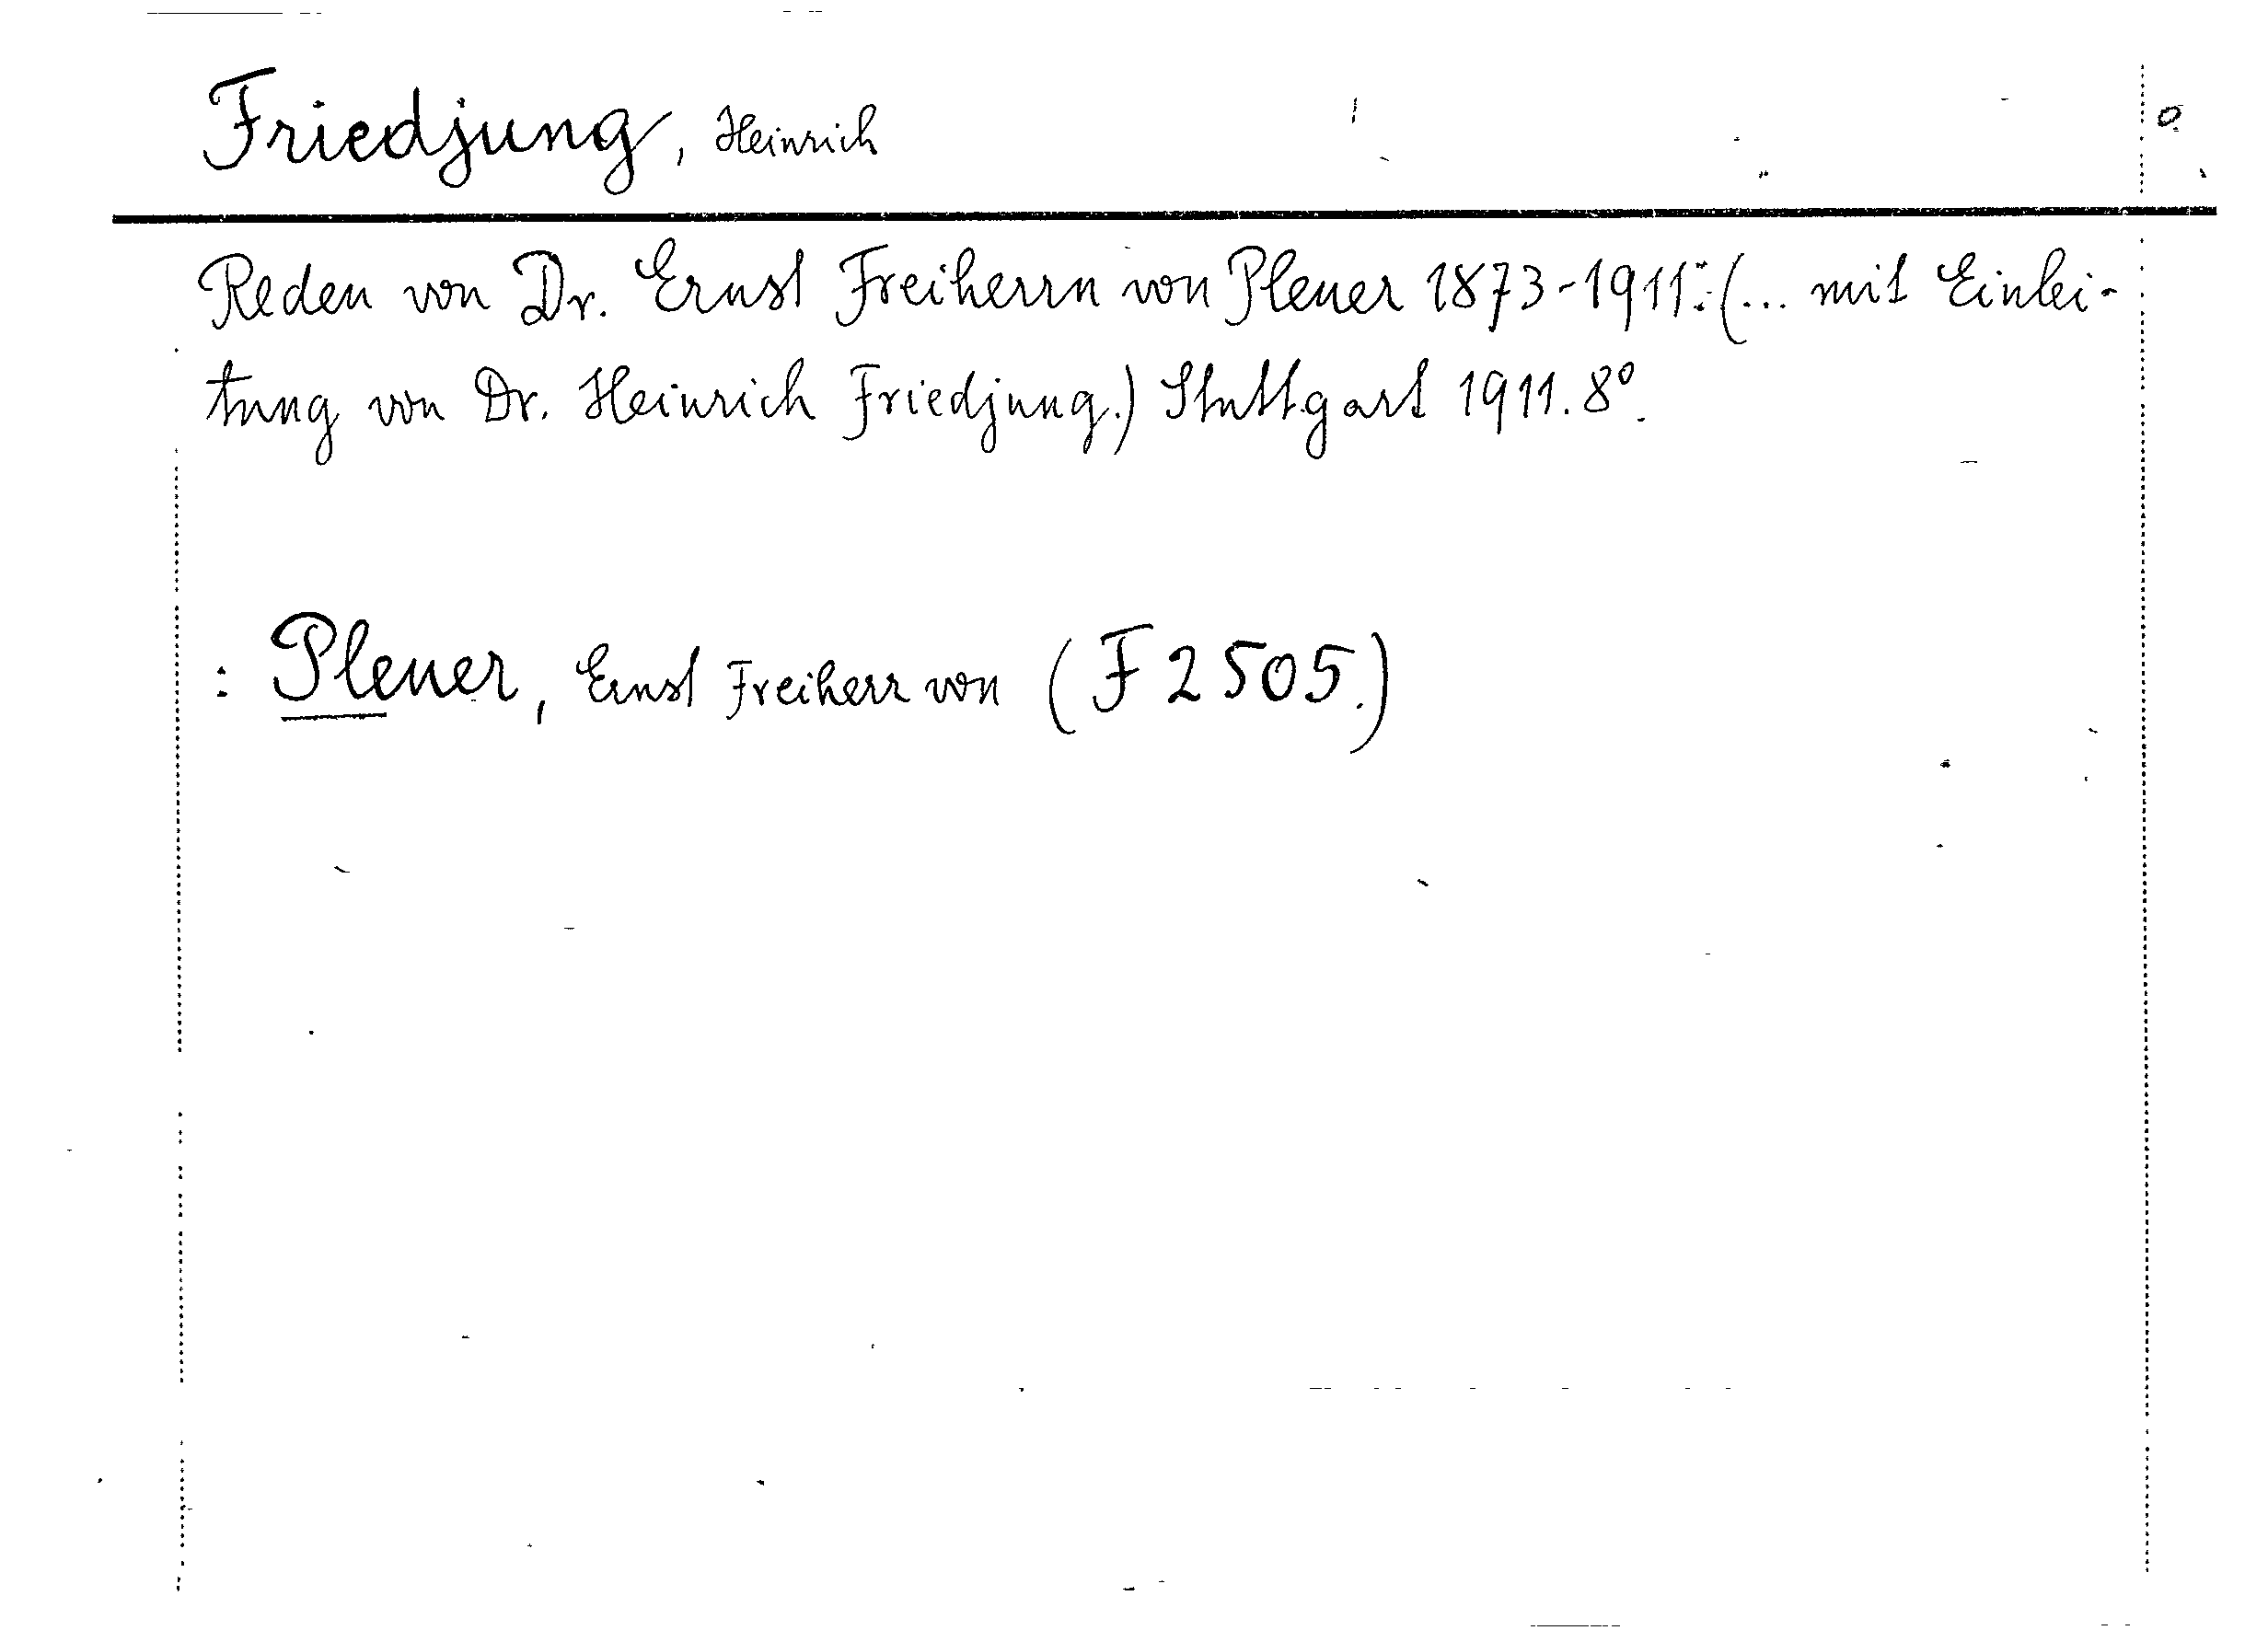 Friedjung, Heinrich
Reden von Dr. Ernst Freiherrn von Plener 1873-1911: (... mit Einlei-
tung von Dr. Heinrich Friedjung.) Stuttgart 1911. 8°.
: Plener, Ernst Freiherr von (F 2505.)